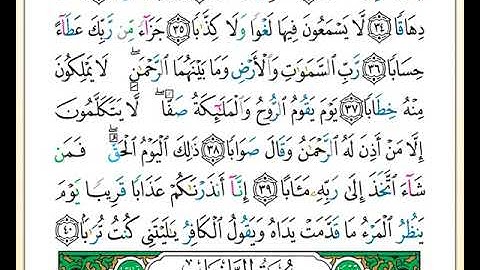 دِهَاقًا ﴿٣٤﴾ لَّا يَسْمَعُونَ فِيهَا لَغْوًا وَلَا كِذَّٰبًا ﴿٣٥﴾ جَزَآءً مِّن رَّبِّكَ عَطَآءً
حِسَابًا ﴿٣٦﴾ رَّبِّ ٱلسَّمَٰوَٰتِ وَٱلْأَرْضِ وَمَا بَيْنَهُمَا ٱلرَّحْمَٰنِ ۖ لَا يَمْلِكُونَ
مِنْهُ خِطَابًا ﴿٣٧﴾ يَوْمَ يَقُومُ ٱلرُّوحُ وَٱلْمَلَٰٓئِكَةُ صَفًّا ۖ لَّا يَتَكَلَّمُونَ
إِلَّا مَنْ أَذِنَ لَهُ ٱلرَّحْمَٰنُ وَقَالَ صَوَابًا ﴿٣٨﴾ ذَٰلِكَ ٱلْيَوْمُ ٱلْحَقُّ ۖ فَمَن
شَآءَ ٱتَّخَذَ إِلَىٰ رَبِّهِۦ مَـَٔابًا ﴿٣٩﴾ إِنَّآ أَنذَرْنَٰكُمْ عَذَابًا قَرِيبًا يَوْمَ
يَنظُرُ ٱلْمَرْءُ مَا قَدَّمَتْ يَدَاهُ وَيَقُولُ ٱلْكَافِرُ يَٰلَيْتَنِى كُنتُ تُرَٰبًۢا ﴿٤٠﴾
سُورَةُ النَّازِعَات